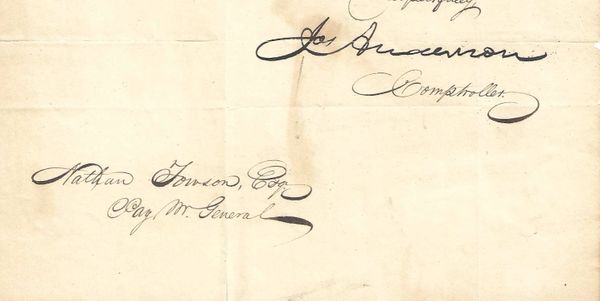 Jos Anderson
Comptroller.
Nathan Towson, Esq.
Pay, Mr. General